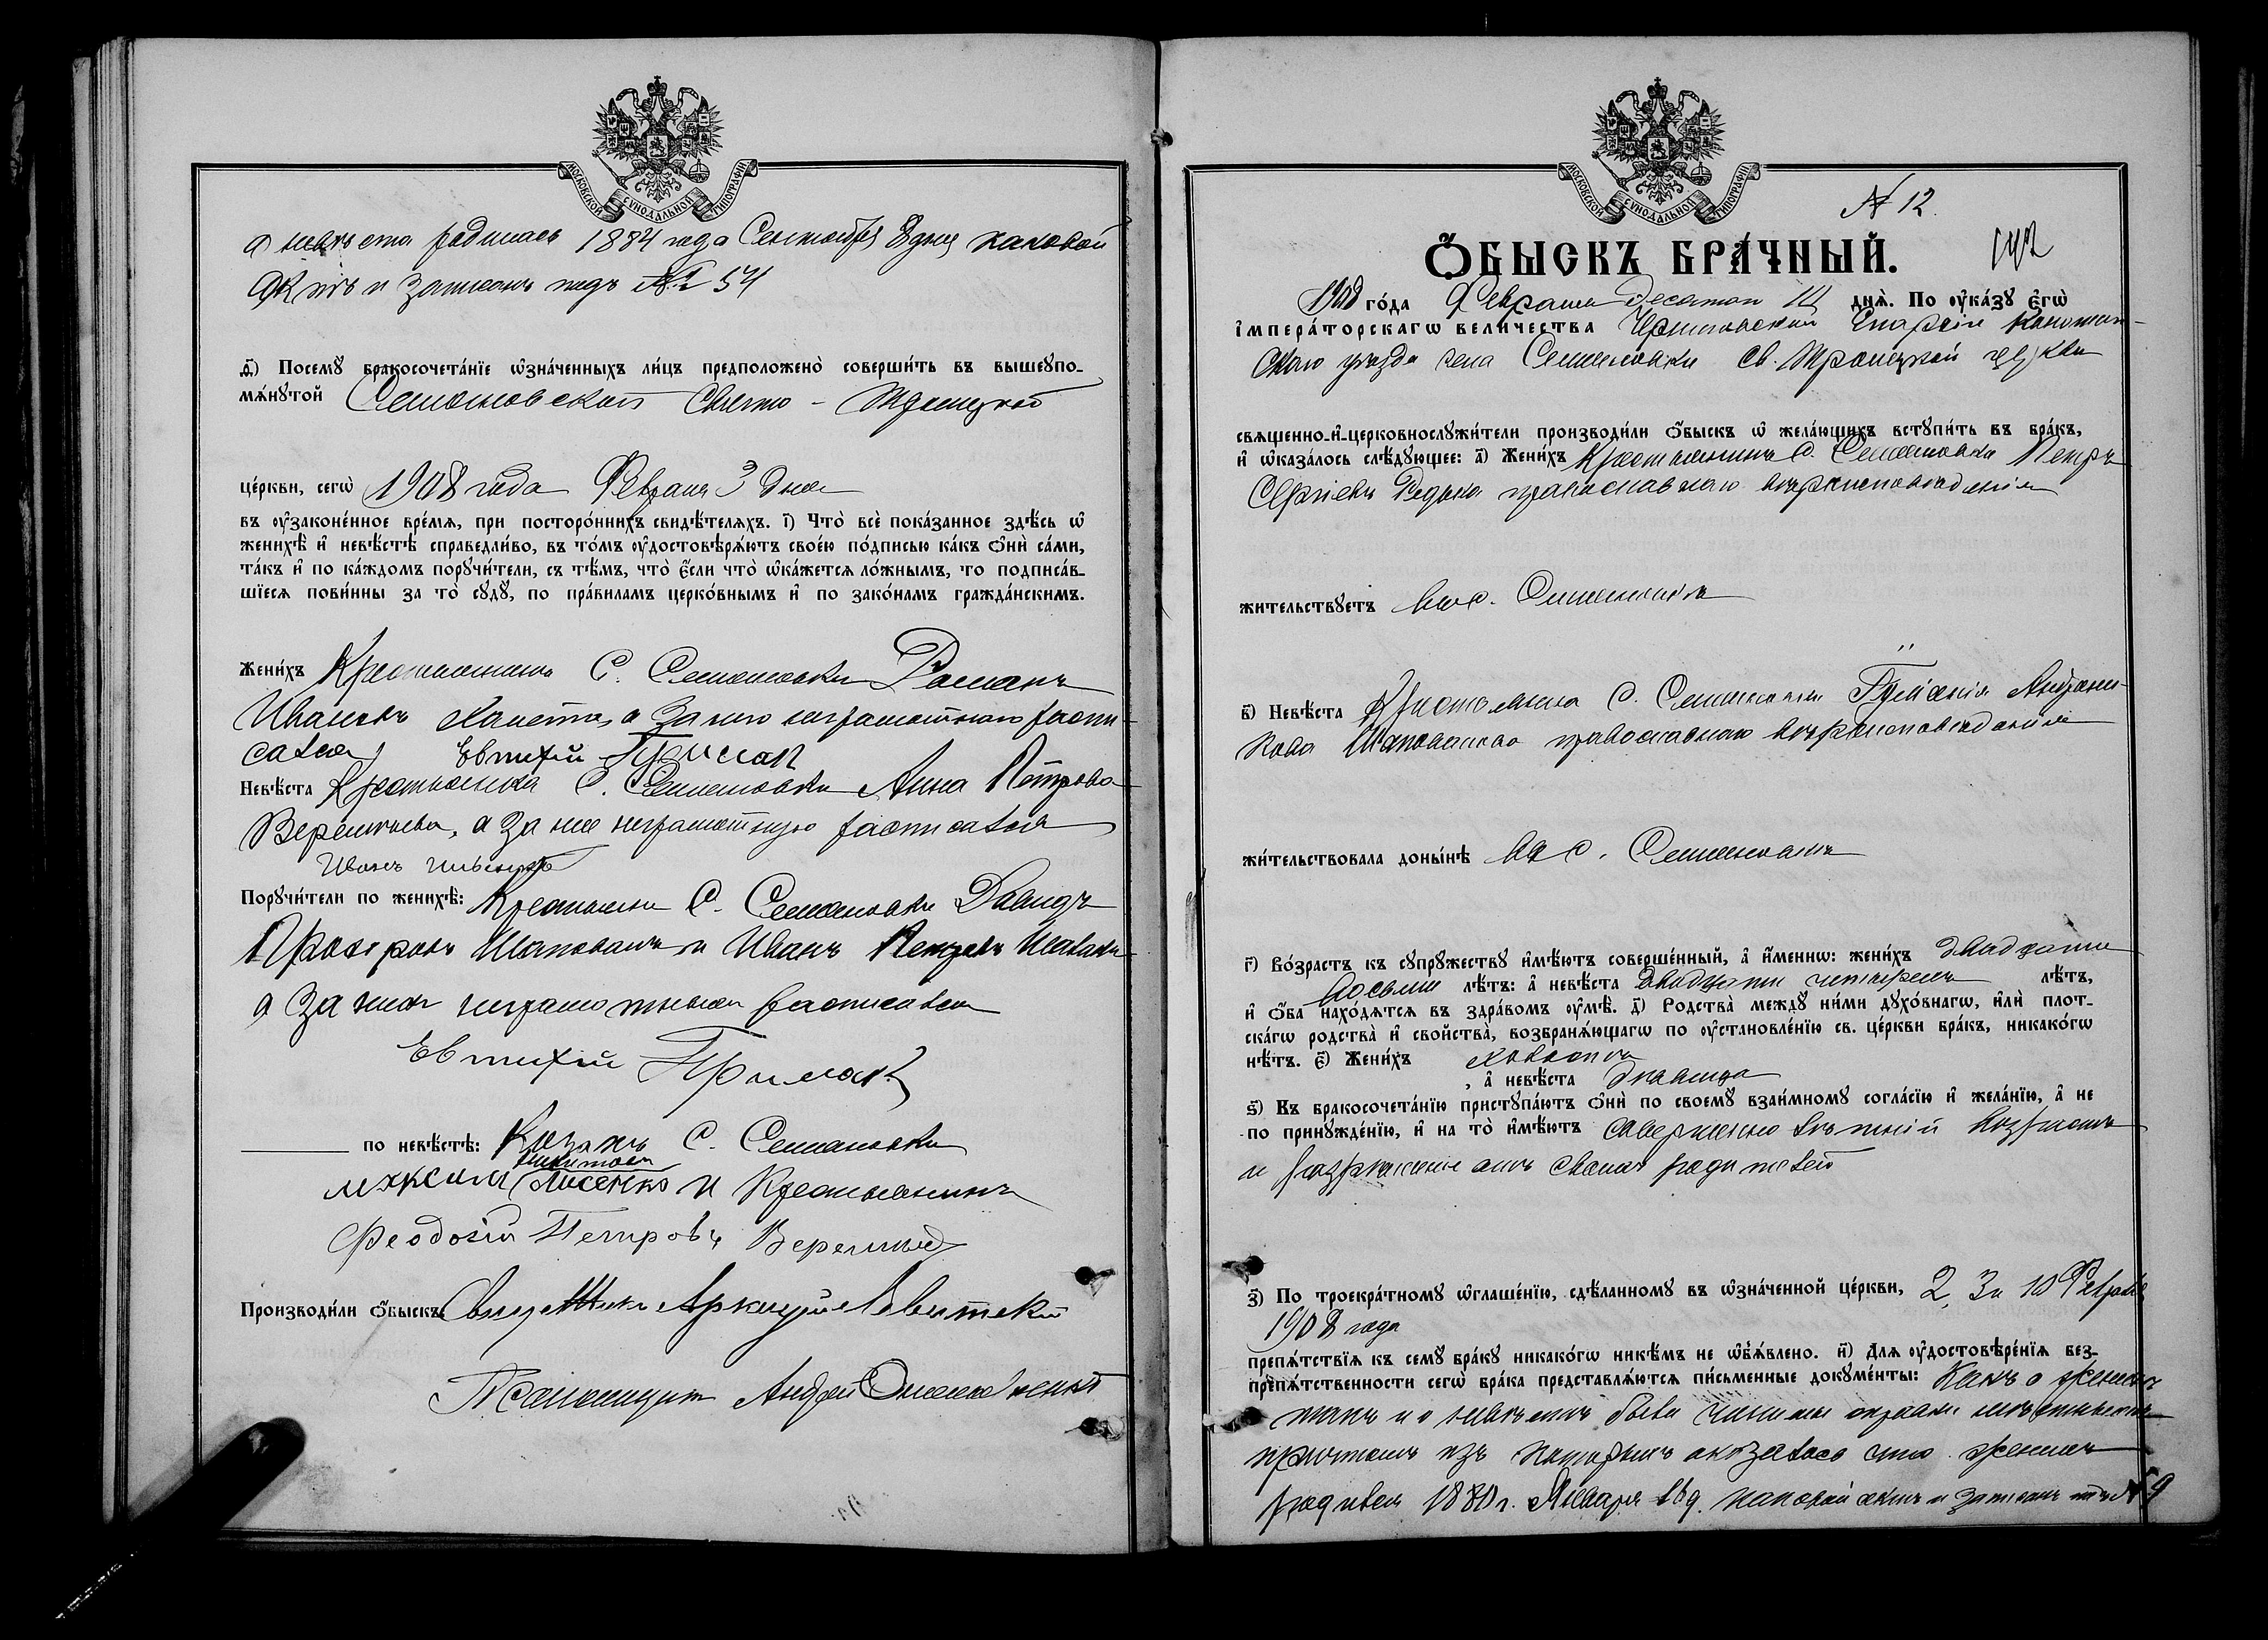 МОСКОВСКОЙ СѴНОДАЛЬНОЙ ТИПОГРАФІИ
а невѣста родилась 1884 года Сентября 8 дня каковой
актъ и записанъ подъ № 54
ѳ҃) Посемꙋ бракосочета́нїе ѡ҆зна́ченныхъ ли́цъ предположено̀ соверши́ть въ вышеꙋпо-
мѧ́нꙋтой Семеновской Свято - Троицкой
це́ркви, сегѡ̀ 1908 года Февраля 3 дня
въ ᲂу҆законе́нное вре́мѧ, при посторо́ннихъ свидѣ́телѧхъ. і҃) Что̀ всѐ пока́занное здѣ́сь ѡ҆
женихѣ̀ и҆ невѣ́стѣ справедли́во, въ то́мъ ᲂу҆достовѣрѧ́ютъ свое́ю по́дписью ка́къ ѻ҆нѝ са́ми,
та́къ и҆ по ка́ждомъ порꙋчи́тели, съ тѣ́мъ, что̀ є҆́сли что̀ ѡ҆ка́жетсѧ ло́жнымъ, то подписа́в-
шїесѧ пови́нны за то̀ сꙋдꙋ̀, по пра́виламъ церко́внымъ и҆ по зако́намъ гражда́нскимъ.
Жени́хъ Крестьянинъ С. Семеновки Романъ
Ивановъ а за него неграмотнаго распи-
сался Евтихій Примак
Невѣ́ста Крестьянка С. Семеновки Анна Петрова
а за нее неграмотную расписался
Иванъ
Порꙋчи́тели по женихѣ̀: Крестьяне С. Семеновки Давидъ
Шаповалъ и Иванъ Петровъ
а за них неграмотныхъ расписался
Евтихій Примак
по невѣ́стѣ: Козакъ С. Семеновки
Никитовъ
Максим Лисенко и Крестьянинъ
Феодосій Петровъ
Производи́ли ѻ҆́быскъ: Левитскій
Андрей
МОСКОВСКОЙ СѴНОДАЛЬНОЙ ТИПОГРАФІИ
№ 12.
Ѻ҆́БЫСКЪ БРА́ЧНЫЙ.
1908 го́да Февраля десятаго 10 днѧ̀. По ᲂу҆ка́зꙋ є҆гѡ̀
і҆мпера́торскагѡ вели́чества Черниговской Епархіи Конотоп-
скаго уѣзда села Семеновки Св. Троицкой церкви
свѧще́нно-и҆-церковнослꙋжи́тели производи́ли ѻ҆́быскъ ѡ҆ жела́ющихъ встꙋпи́ть въ бра́къ,
и҆ ѡ҆каза́лось слѣ́дꙋющее: а҃) Жени́хъ Крестьянинъ С. Семеновки Петръ
Сергіевъ Редька православнаго вѣроисповѣданія
жи́тельствꙋетъ въ с. Семеновкѣ
в҃) Невѣ́ста Крестьянка С. Семеновки Андрони-
кова Шаповалова православнаго вѣроисповѣданія
жи́тельствовала доны́нѣ въ с. Семеновкѣ
г҃) Во́зрастъ къ сꙋпрꙋ́жествꙋ и҆мѣ́ютъ соверше́нный, а҆ и҆́меннѡ: жени́хъ двадцати
восьми лѣ́тъ: а҆ невѣ́ста двадцати четырехъ лѣ́тъ,
и҆ ѻ҆́ба нахо́дѧтсѧ въ здра́вомъ ᲂу҆мѣ̀. д҃) Родства̀ междꙋ̀ ни́ми дꙋхо́внагѡ, и҆лѝ плот-
ска́гѡ родства̀ и҆ сво́йства̀, возбранѧ́ющагѡ по ᲂу҆становле́нїю св. це́ркви бра́къ, никако́гѡ
нѣ́тъ. є҃) Жени́хъ холостъ
, а҆ невѣ́ста дѣвица
ѕ҃) Къ бракосочета́нїю пристꙋпа́ютъ ѻ҆нѝ по своемꙋ̀ взаи́мномꙋ согла́сїю и҆ жела́нїю, а҆ не
по принꙋжде́нїю, и҆ на то̀ и҆мѣ́ютъ совершеннолѣтній возрастъ
и разрѣшеніе отъ своихъ родителей
з҃) По троекра́тномꙋ ѡ҆глаше́нїю, сдѣ́ланномꙋ въ ѡ҆зна́ченной це́ркви, 2, 3 и 10 Февраля
1908 года
препѧ́тствїѧ къ семꙋ̀ бра́кꙋ никако́гѡ никѣ́мъ не ѡ҆б̾ѧ́влено. и҃) Длѧ ᲂу҆достовѣре́нїѧ без-
препѧ́тственности сегѡ̀ бра́ка представлѧ́ютсѧ пи́сьменные докꙋме́нты: Какъ о женихѣ
такъ и о невѣстѣ были
причтомъ изъ которыхъ оказалось что женихъ
родился 1880 г. Января 16 д. каковой актъ и записанъ подъ № 9